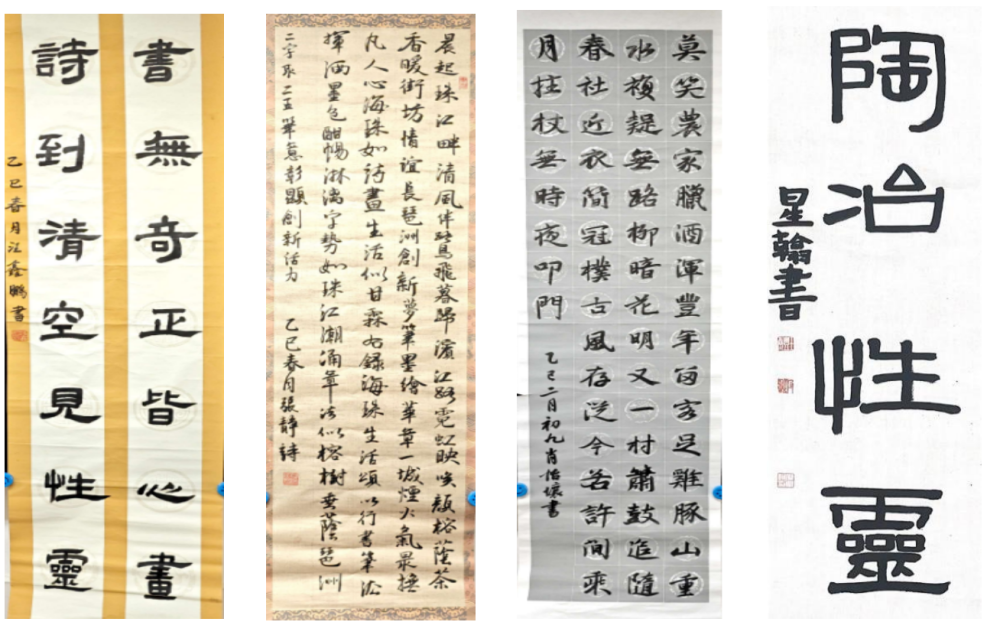 書無奇正皆心畫
詩到清空見性靈
乙巳春月汪鑫鵬書
晨起珠江畔清風伴鷺飛暮歸濱江路霓虹映笑顏榕蔭茶
香暖街坊情誼長琶洲創新夢筆墨繪華章一城煙火氣最撫
凡人心海珠如詩畫生活似甘霖為錄海珠生活頌以行書筆法
揮洒墨色酣暢淋漓字勢如珠江潮涌章法似榕樹垂蔭琶洲
二字取二王筆意彰顯創新活力 乙巳春月張靜詩
莫笑農家臘酒渾豐年留客足雞豚山重
水複疑無路柳暗花明又一村簫鼓追隨
春社近衣簡冠樸古風存從今若許閒乘
月拄杖無時夜叩門
乙巳二月初九肖怡書
陶冶性靈
星翰書